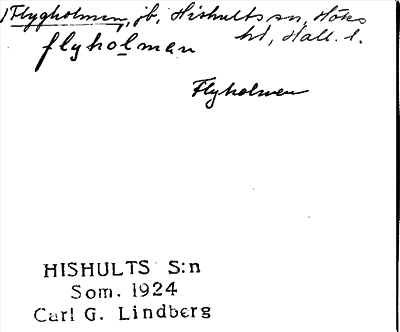 Flygholmen, jb, Hishults sn, Höks
hd, Hall. l.
flyholman
Flyholmen
HISHULTS S:n
Som. 1924
Carl G. Lindberg